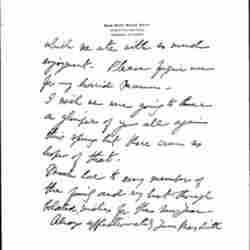 which we ate with so much
enjoyment. Please forgive me
for my horrid manners.
I wish we were going to have
a glimpse of you all again
this spring but there seems no
hope of that.
Much love to every member of
the family and my best though
belated wishes for the New Year
Always affectionately,